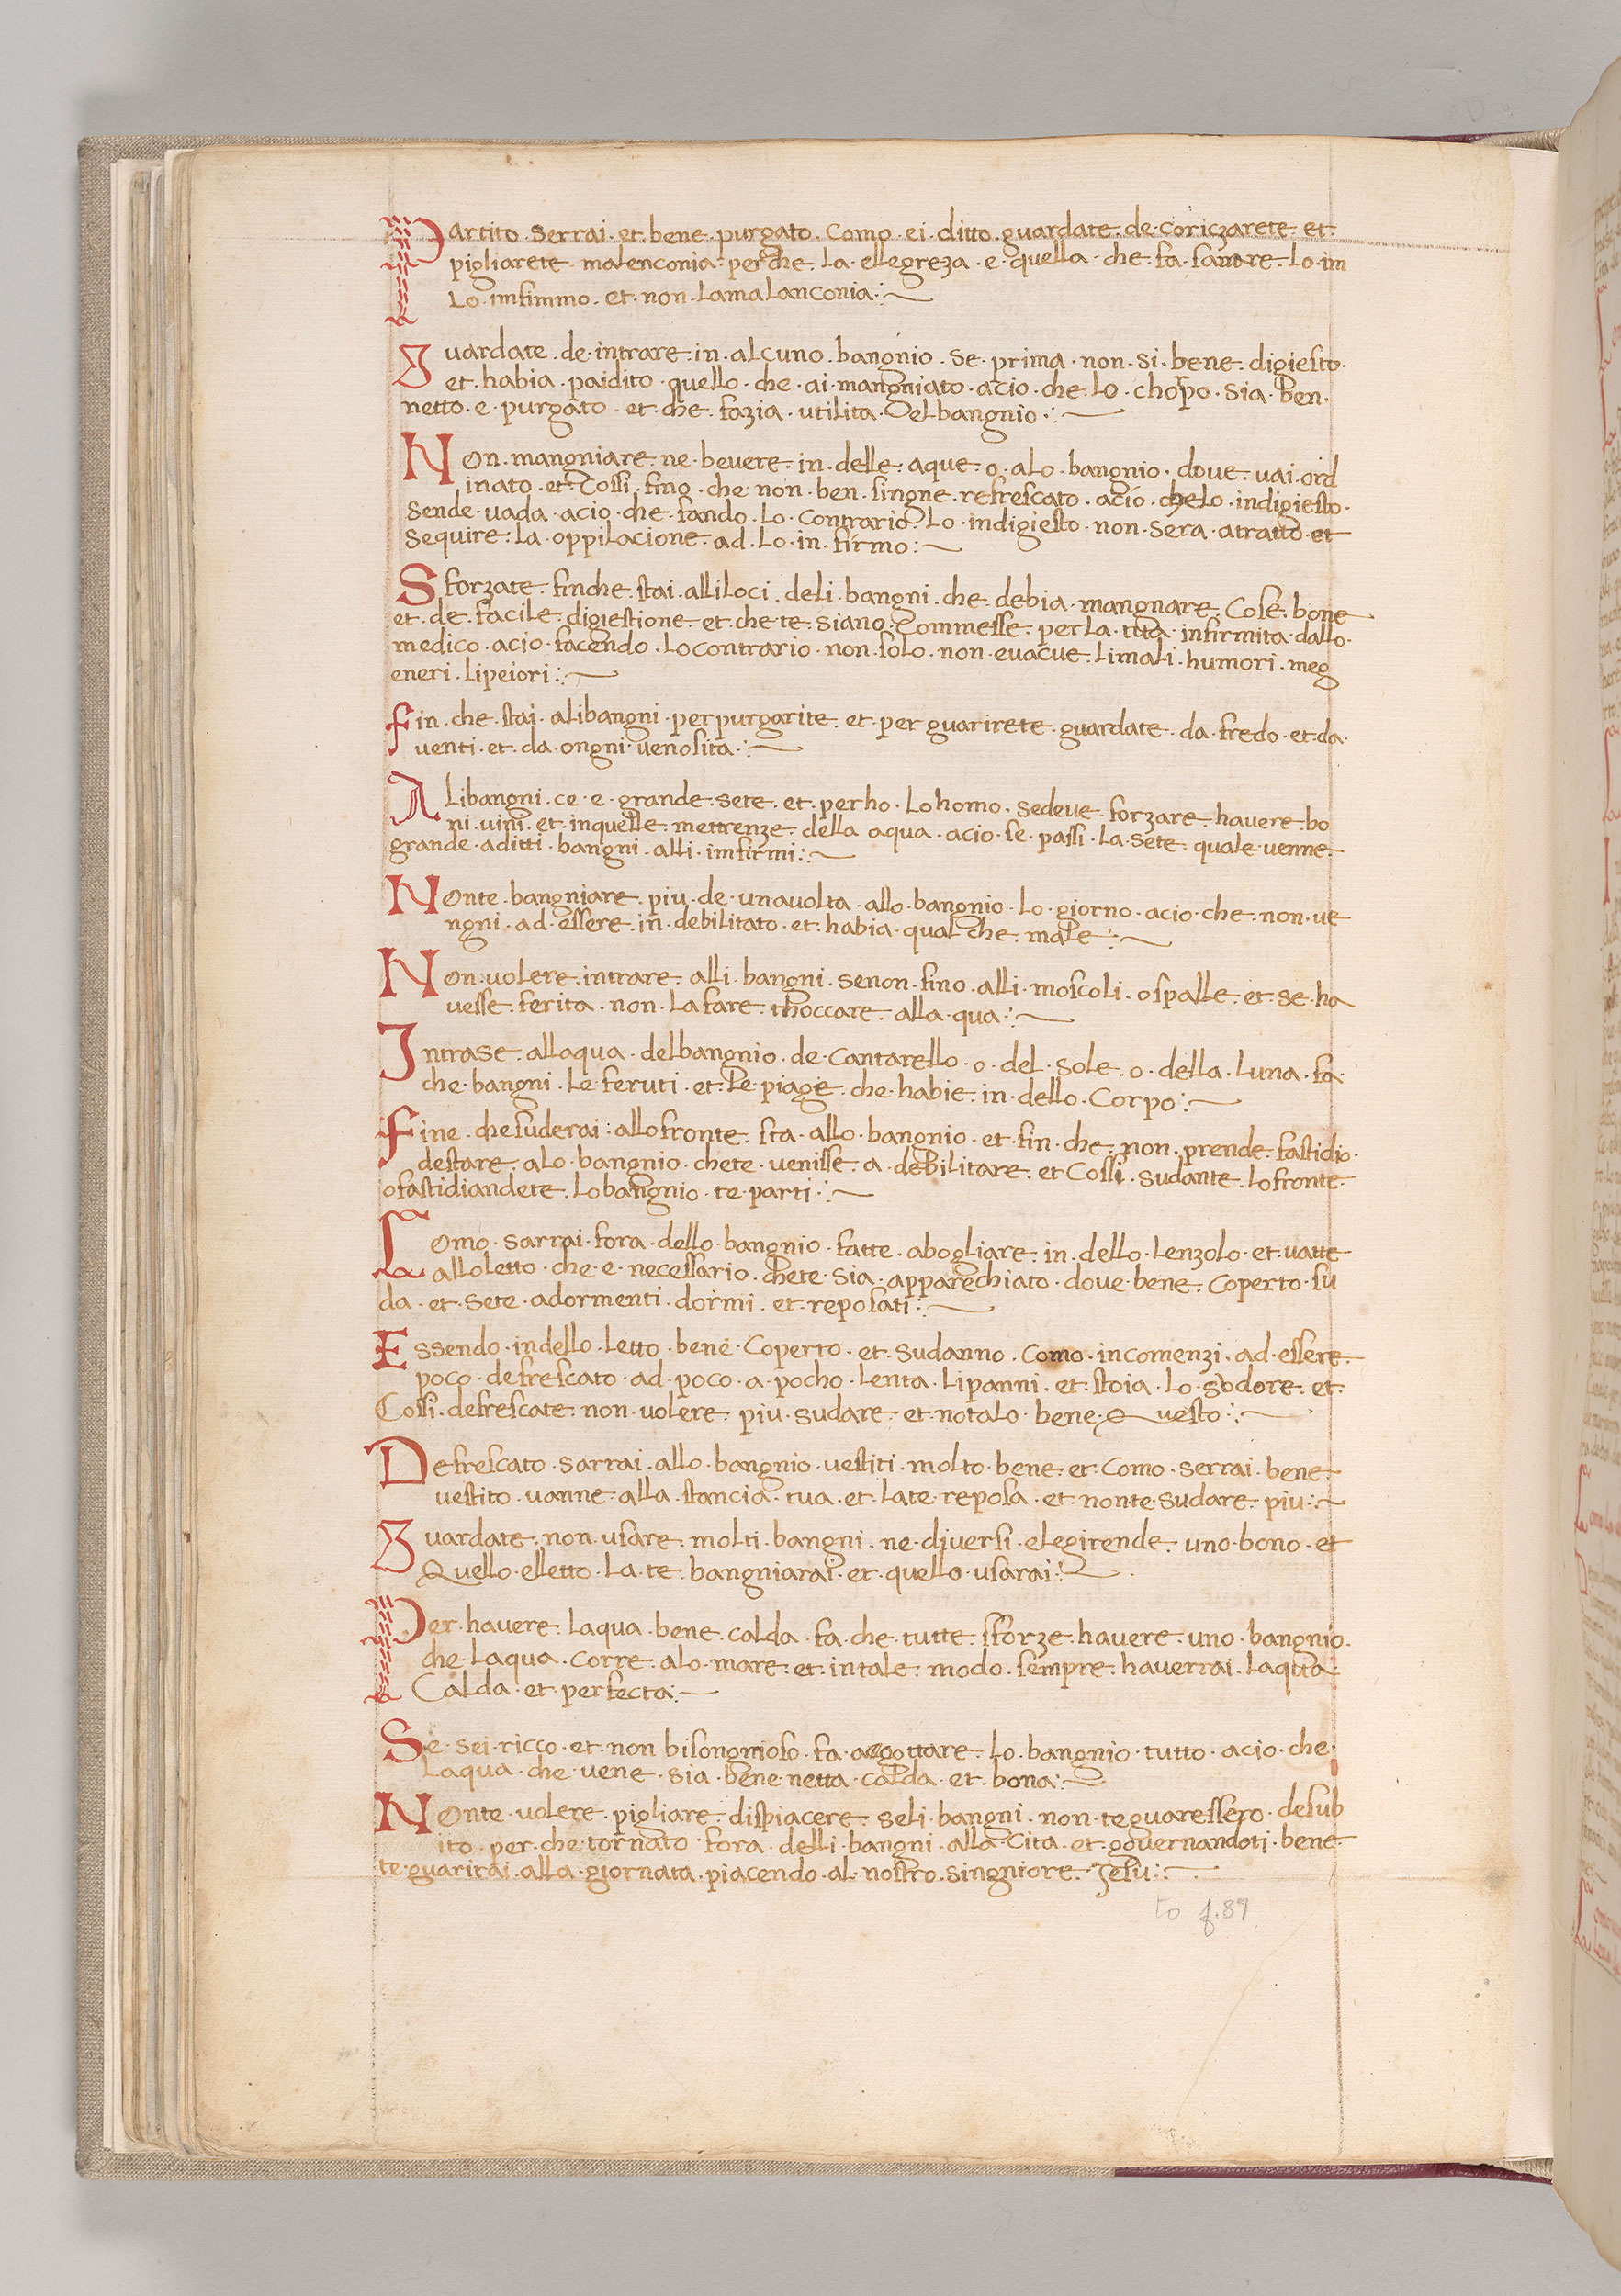 Partito . serrai . et . bene . purgato . Como . ei . ditto . guardate . de . coriczarete . et .
pigliarete . malenconia . perche . la . ellegreza . e . quella . che . fa . sanare . lo . im
Lo . imfimmo . et . non . Lamalanconia :
Guardate . de . intrare . in . alcuno . bangnio . se . prima . non . si . bene . digiesto .
et . habia . paidito . quello . che . ai . mangniato . acio . che . lo . chorpo . sia . ben .
netto . e . purgato . et . che . fazia . utilita . Delbangnio :
Non . mangniare . ne . bevere . in . delle . aque . o . alo . bangnio . dove . vai . ord
inato . et . Cossi . fino . che non . ben . singne . refrescato . acio . chelo . indigiesto .
sende . vada . acio . che . fando . lo . contrario . lo . indigiesto . non . sera . atratto . et
sequire . la . oppilacione . ad . lo . in . firmo :
Sforzate . finche . stai . alliloci . deli . bangni . che . debia . mangnare . Cose . bone
et . de . facile . digiestione . et . che te . siano . Commesse . perla . tua . infirmita . dallo .
medico . acio . facendo . locontrario . non . solo . non . evacue . limali . humori . meg
eneri . lipeiori :
Fin . che . stai . alibangni . perpurgarite . et . per guarirete . guardate . da . fredo . et . da .
venti . et . da . ongni . venosita :
Alibangni . ce . e . grande . sete . et . perho . lohomo . sedeve . forzare . havere . bo
ni . vini . et . inquelle . mettrenze . della aqua . acio . se . passi . la . sete . quale . venne .
grande . aditti . bangni . alli . imfirmi :
Nonte . bangniare . piu . de . unavolta . allo . bangnio . lo . giorno . acio . che . non . ve
ngni . ad . essere . in . debilitato . et . habia . qual che . male :
Non . volere . intrare . alli . bangni . senon . fino . alli . moscoli . o spalle . et . se . ha
vesse . ferita . non . la fare . thoccare . alla . qua :
Intrase . allaqua . delbangnio . de . Cantarello . o . del . sole . o . della . luna . fa .
che . bangni . le . feruti . et . le . piage . che . habie . in . dello . Corpo :
Fine . chesuderai . allofronte . sta . allo . bangnio . et . fin . che . non . prende . fastidio .
destare . alo . bangnio . chete . venisse . a . debilitare . et Cossi . sudante . lofronte .
ofastidiandete . lobangnio . te . parti :
Como . sarrai . fora . dello . bangnio . fatte . abogliare . in . dello . lenzolo . et . vatte
alloletto . che . e . necessario . chete . sia . apparechiato . dove . bene . coperto . su
da . et . sete . adormenti . dormi . et . reposati :
Essendo . indello . letto . bene . Coperto . et . sudanno . Como . incomenzi . ad . essere .
poco . defrescato . ad . poco . a . pocho . lenta . lipanni . et . stoia . lo . sodore . et .
Cossi . defrescate . non . volere . piu . sudare . et . notalo . bene . Questo :
Defrescato . sarrai . allo . bangnio . vestiti . molto . bene . et . Como . serrai . bene .
vestito . vanne . alla . stancia . tua . et . late . reposa . et . nonte . sudare . piu :
Guardate . non . usare . molti . bangni . ne . diversi . elegirende . uno . bono . et
Quello . elletto . la . te . bangniarai . et . quello . usarai :
Per . havere . laqua . bene . calda . fa . che . tutte . sforze . havere . uno . bangnio .
che . laqua . corre . alo . mare . et . intale . modo . sempre . haverrai . laqua .
Calda . et . perfecta :
Se . sei . ricco . et . non . bisongnioso . fa . aggottare . lo . bangnio . tutto . acio . che .
laqua . che . vene . sia . bene . netta . calda . et . bona :
Nonte . volere . pigliare . dispiacere . seli . bangni . non . teguaressero . desub
ito . per . che . tornato . fora . delli . bangni . alla . cita . et . governandoti . bene .
te . guarirai . alla . giornata . piacendo . al . nostro . singniore . Jesu :
to f.89